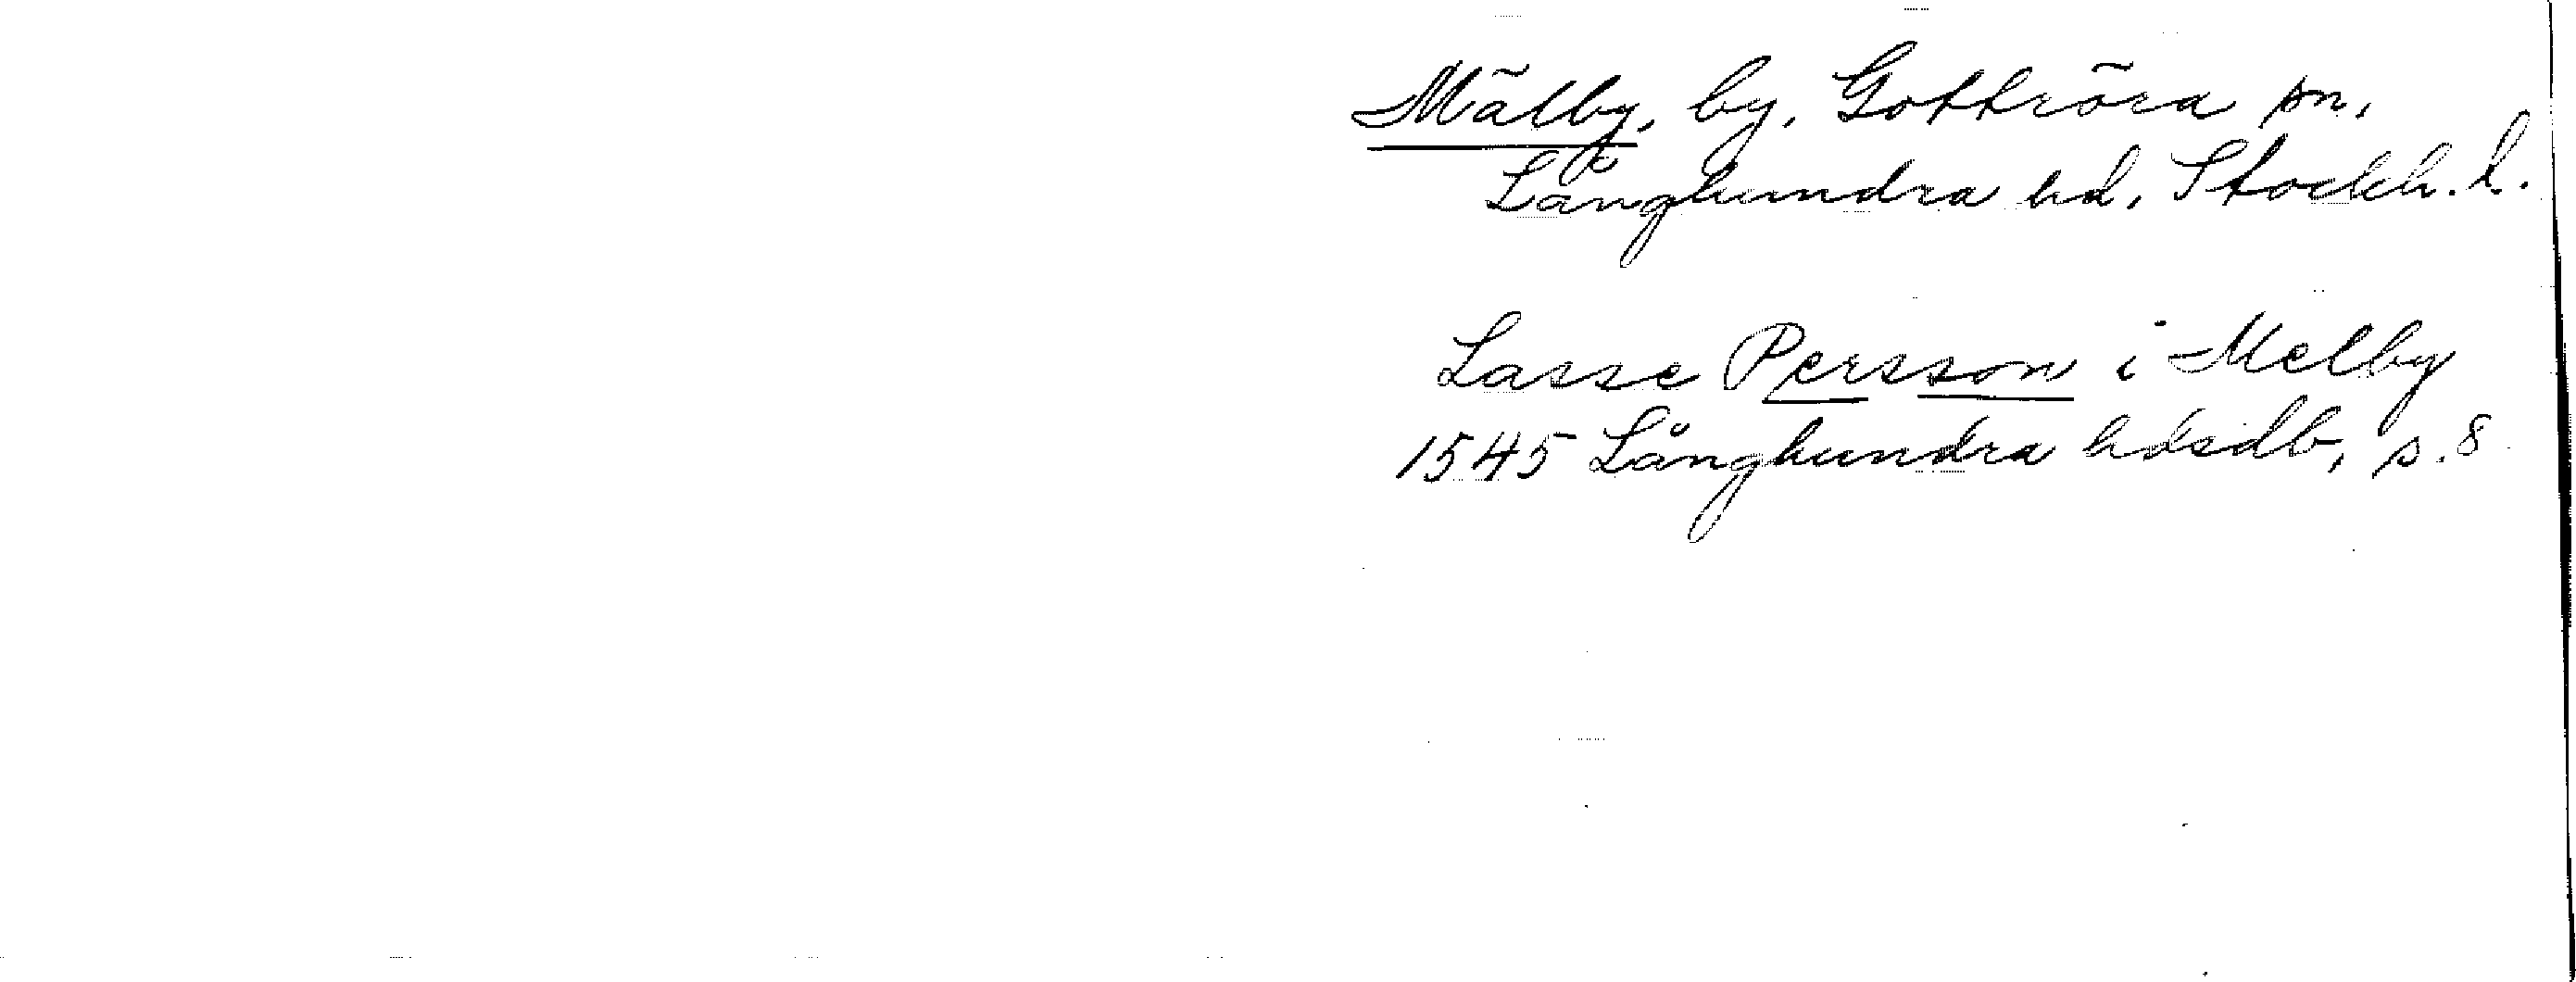 Mälby, by, Gottröra sn,
Långhundra hd, Stockh. l.
Lasse Persson i Melby
1545 Långhundra hdsdb, s. 8